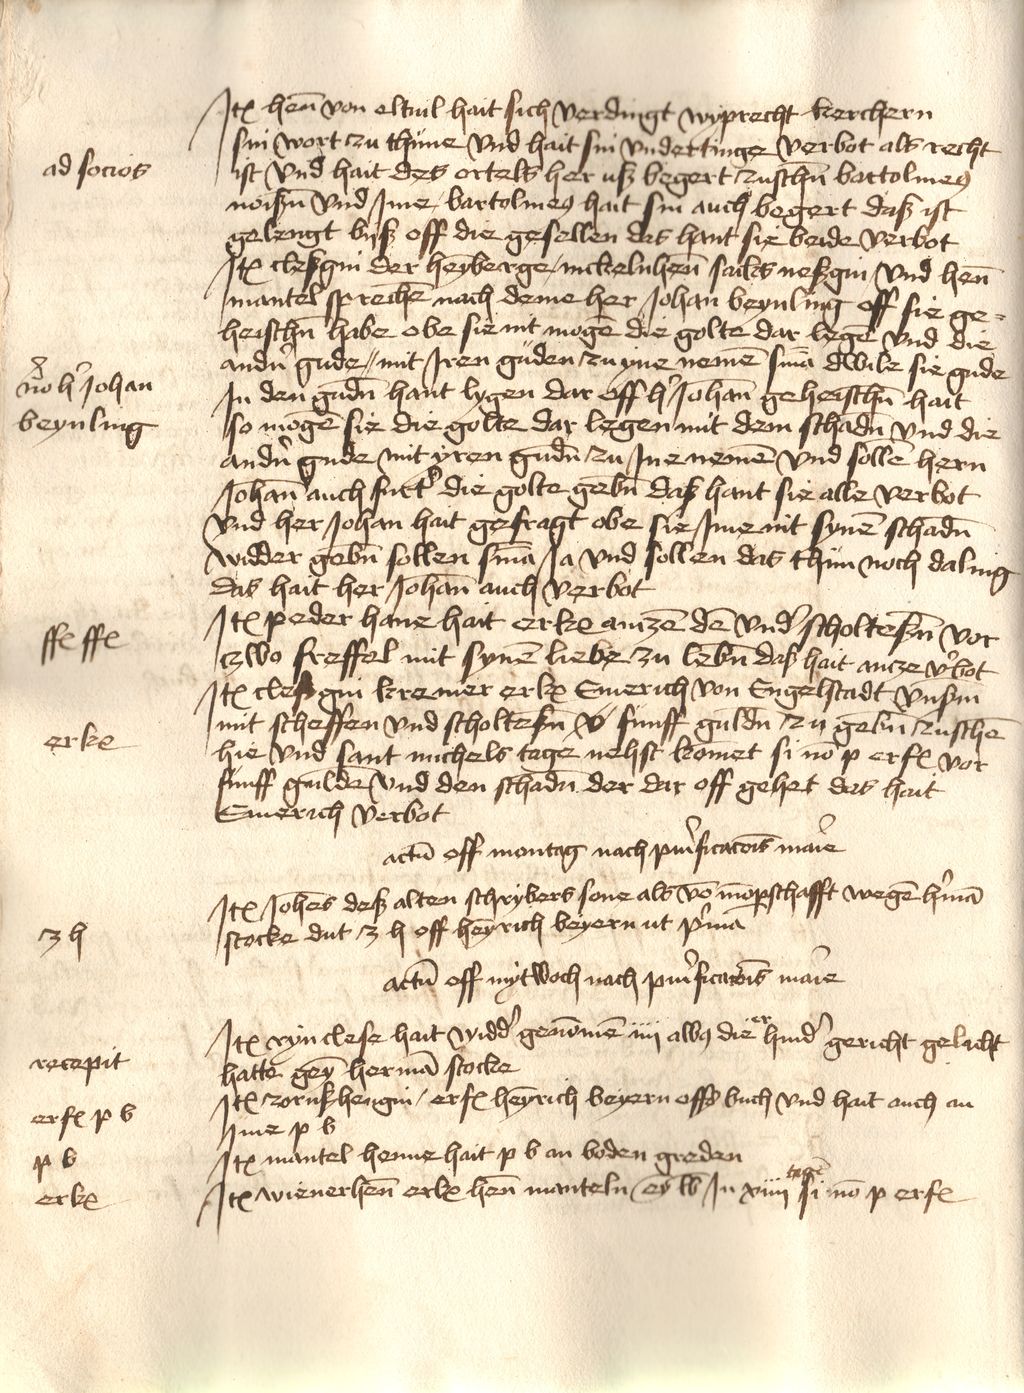 Itꝫ hen̄ von eltuil hait sich verdingt wyprecht kerchern
sin wort zu thüne vnd hait sin vndertinge verbot als recht
ad socios
ist vnd hait des ortels her uß begert zuschn̄ bartolmeꝯ
noißn̄ vnd Ime bartolmeꝯ hait sin auch begert daß ist
gelengt biß off die gesellen das hant sie beide verbot
Itꝫ cleßgin der heyberge / nickelnhen̄ sacks neßgin vnd hen̄
mantel sprechē nach deme her Johan beynling off sie ge=
heischn̄ habe obe sie nit mogē die golte dar legē vnd die
andn̉ gude // mit Iren guden zu yne nemē sm̄a dwile sie gude
In den gudn̄ hant lygen dar off h̉ Johan̄ geheischn̄ hait
n̄o h̉ Johan
beynling
so mogē sie die golte dar legen mit dem schadn̄ vnd die
andn̉ gude mit yren gudn̄ zu Ine nemē vnd solle hern
Johan̄ auch furt̉ die golte gebn̄ daß hant sie alle verbot
vnd her Johan hait gefragt obe sie Ime nit synē schadn̄
widder gebn̄ sollen sm̄a Ja vnd sollen das thün noch daling
das hait her Johan̄ auch verbot
ffe ffe
Itꝫ peder hane hait erkꝫ antzē dē vnd̉ scholteßn̄ vor
czwo freffel mit synē liebe zu lebn̄ daß hait antze v̉bot
Itꝫ cleßgin kremer erkꝫ Emerich von Engelstadt vnßm
erkꝫ
mit scheffen vnd scholteßn̄ v funff guldn̄ zu gebn̄ zuschē
hie vnd sant michels tage nehst komet si nō p erfꝫ vor
funff gulde vnd den schadn̄ der dar off gehet das hait
Emerich verbot
actū off montag nach pur̉ficacōis marie
Itꝫ Johēs deß alten schrybers sone als vō mōpschafft wegē h̉mā
3 h
stocke dut 3 h off heyrich beyern ut p̉ma
actū off mytwoch nach pur̉ficacōis marie
Itꝫ ryn clese hait widd̉ genōmē iiii albꝯ die er hind̉ gericht gelacht
recepit
hatte geȳ hermā stocke
erfꝫ p b
Itꝫ zornßhengin / erfꝫ heyrich beyern offs buch vnd hait auch an
Ime p b
p b
Itꝫ mantel henne hait p b an boden greden
erkꝫ
Itꝫ wienerhen̄ erkꝫ hen̄ manteln In xiiii tagē si nō p erfꝫ